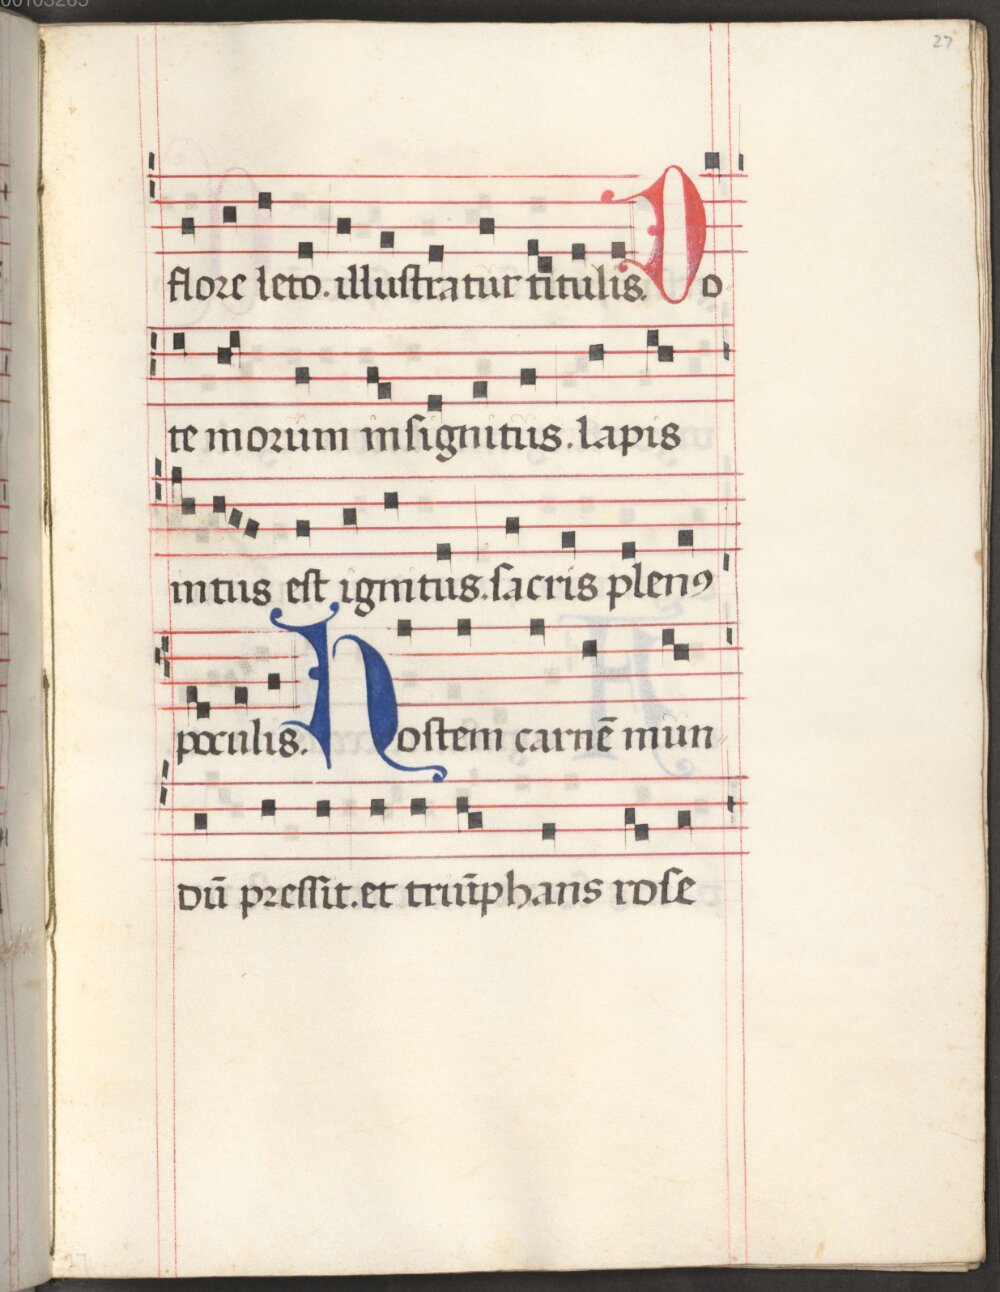 00103265
27
flore leto. illustratur titulis. Do
te morum insignitus. lapis
intus est ignitus. sacris plenꝯ
poculis. Hostem carnē mun
dū pressit. et triūphans rose
27